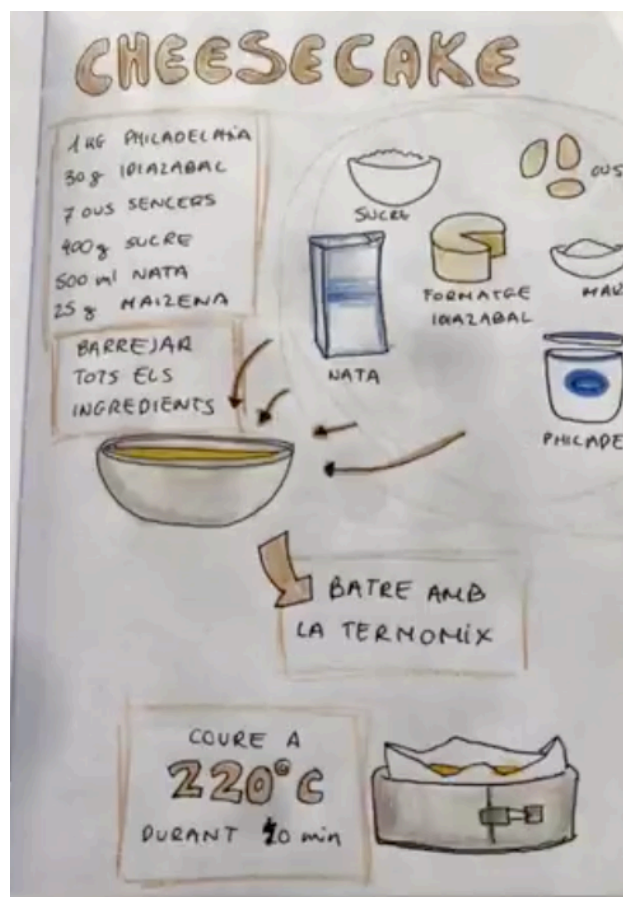 CHEESECAKE
1 KG PHILADELPHIA
30 g IDIAZABAL
7 OUS SENCERS
400 g SUCRE
500 ml NATA
25 g MAIZENA
BARREJAR
TOTS ELS
INGREDIENTS
SUCRE
OUS
FORMATGE
IDIAZABAL
MAI
NATA
PHILADE
BATRE AMB
LA TERMOMIX
COURE A
220°C
DURANT min